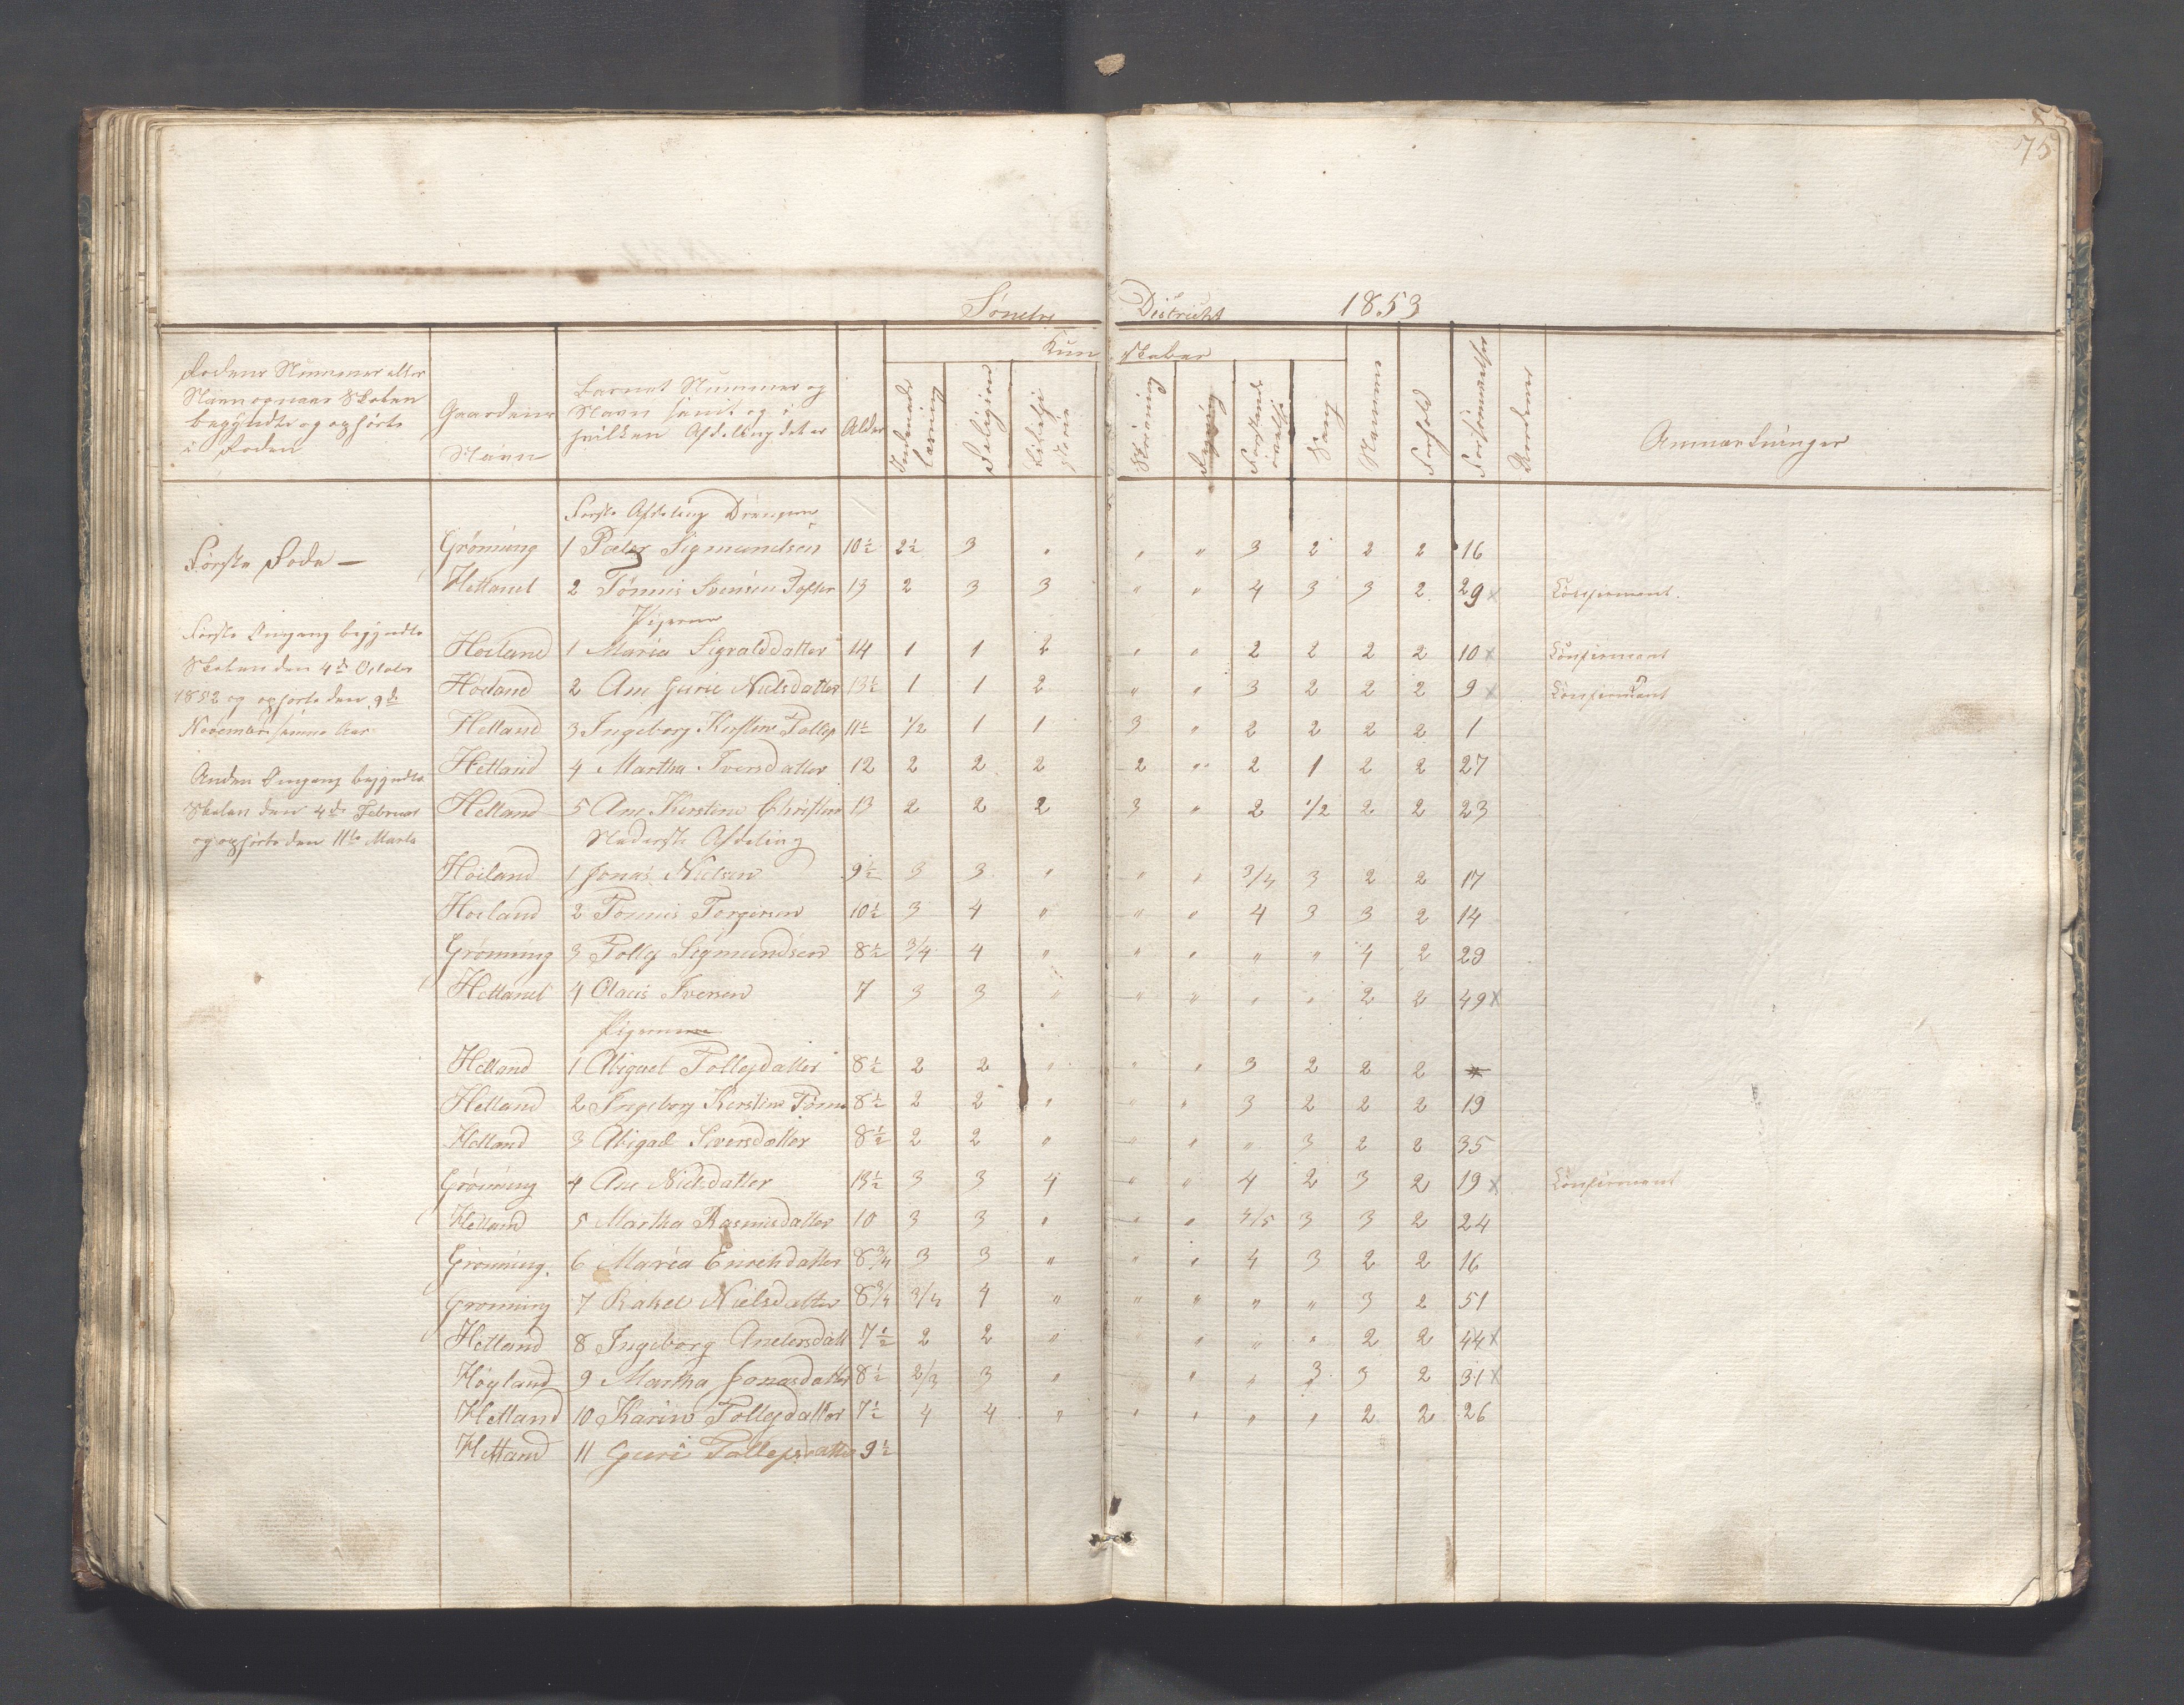 75
Søndre District 1853
Rodens Nummer eller
Navn og naar Skolen
begyndte og ophørte
i Roden
Gaardens
Navn
Barnets Nummer og
Navn samt og i
hvilken Afdeling det er
Alder
Kundskaber
Indenads
læsning
Religion
Bibelhi
storie
Skrivning
Regning
Forstands
øvelse
Sang
Nemme
Forhold
Forsømmelser
Anmærkninger
Første Rode —
Første Omgang begyndte
Skolen den 4de October
1852 og ophørte den 9de
November samme Aar
Anden Omgang begyndte
Skolen den 4de Februar
og ophørte den 11te Marts
Første Afdeling Drengene
Grønning 1 Peder Sigmundsen 10½ 2½ 3 " " " 3 2 2 2 16
Hetland 2 Tønnis Svensen 13 2 3 3 " " 4 3 3 2 29 x Confirmant.
Pigerne
Høiland 1 Maria Sigvalddatter 14 1 1 2 " " 2 2 2 2 10 x Confirmant
Høiland 2 Ane Gurie Nielsdatter 13½ 1 1 2 " " 3 2 2 2 9 x Confirmant
Hetland 3 Ingeborg Kirstine Tollef 11½ 1/2 1 1 3 " 2 2 2 2 1
Hetland 4 Martha Iversdatter 12 2 2 2 2 " 2 1 2 2 27
Hetland 5 Ane Kirstine Christen 13 2 2 2 3 " 2 1/2 2 2 23
Nederste Afdeling
Høiland 1 Jonas Nielsen 9½ 3 3 " " " 3/4 3 2 2 17
Høiland 2 Tønnis Torgersen 10½ 3 4 " " " 4 3 3 2 14
Grønning 3 Tollef Sigmundsen 8½ 3/4 4 " " " " " 4 2 29
Hetland 4 Olaus Iversen 7 3 3 " " " " " 2 2 49 x
Pigerne
Hetland 1 Abigael Tollefsdatter 8½ 2 2 " " " 3 2 2 2
Hetland 2 Ingeborg Kirstine Tønn 8½ 2 2 " " " 3 2 2 2 19
Hetland 3 Abigael Siversdatter 8½ 2 2 " " " " 3 2 2 35
Grønning 4 Ane Nielsdatter 13½ 3 3 4 " " 4 2 3 2 19 x Confirmant
Hetland 5 Martha Rasmusdatter 10 3 3 " " " 4/5 3 3 2 24
Grønning. 6 Maria Enochdatter 8¾ 3 3 " " " 4 3 2 2 16
Grønning 7 Rakel Nielsdatter 8¾ 3/4 4 " " " " " 3 2 51
Hetland 8 Ingeborg Andersdatt 7½ 2 2 " " " " " 2 2 44 x
Høyland 9 Martha Jonasdatter 8½ 2/3 3 " " " " 3 3 2 31 x
Hetland 10 Karin Tollefsdatter 7½ 4 4 " " " " " 2 2 26
Hetland 11 Guri Tollefsdatter 9½